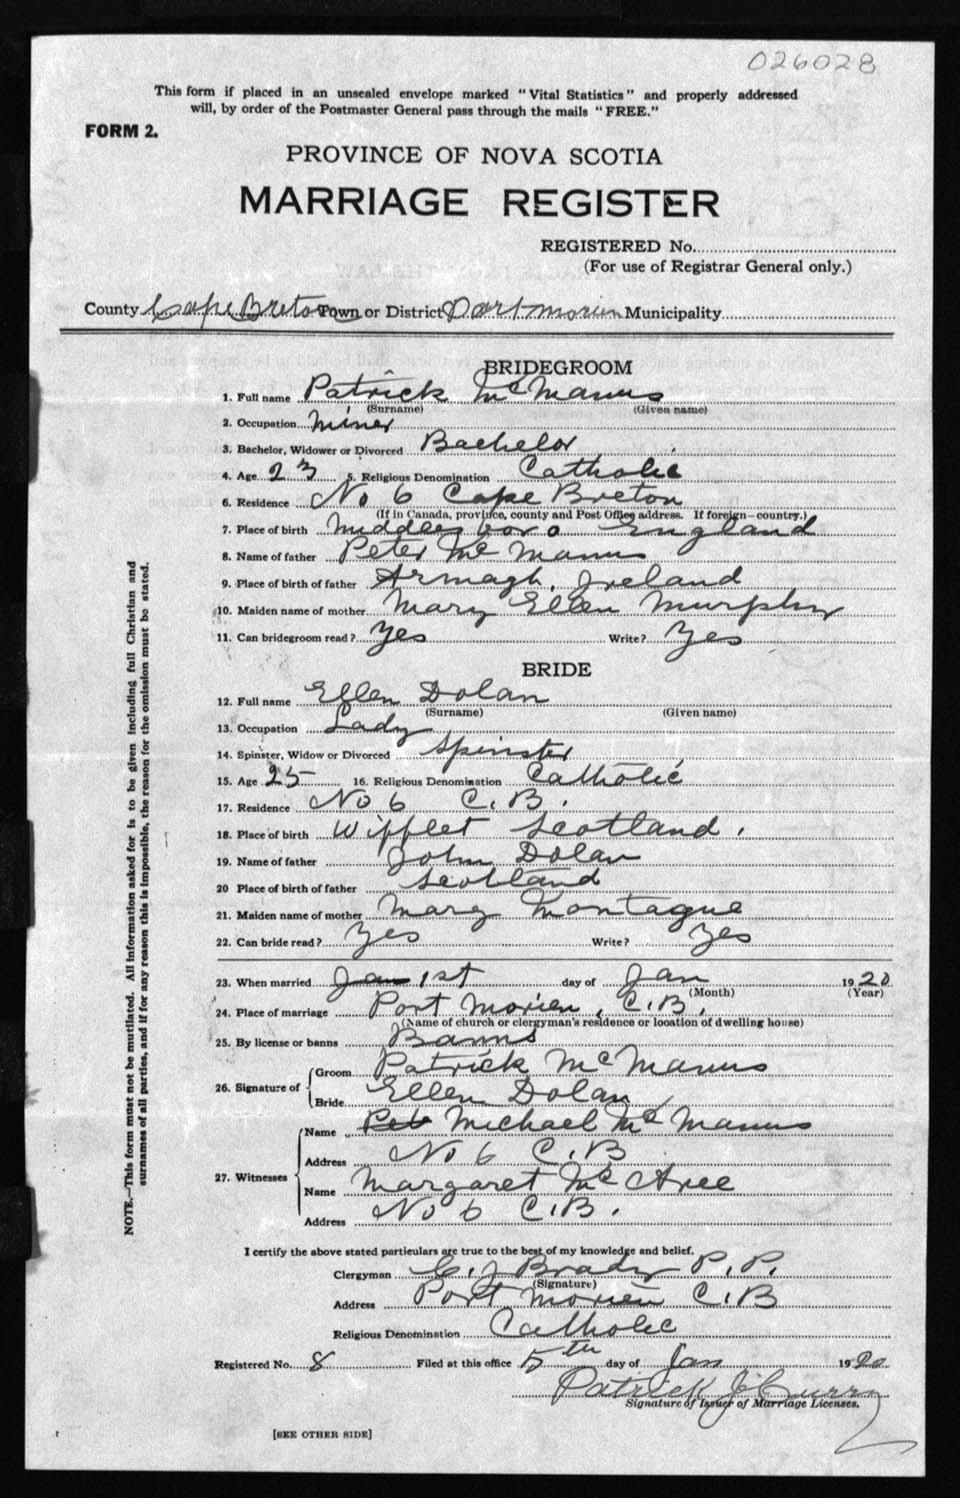 026028
This form if placed in an unsealed envelope marked "Vital Statistics" and properly addressed
will, by order of the Postmaster General pass through the mails "FREE."
FORM 2.
PROVINCE OF NOVA SCOTIA
MARRIAGE REGISTER
REGISTERED No.
(For use of Registrar General only.)
County Cape Breton Town or District Port Morien Municipality
BRIDEGROOM
1. Full name Patrick McManus
(Surname) (Given name)
2. Occupation Miner
3. Bachelor, Widower or Divorced Bachelor
4. Age 23 5. Religious Denomination Catholic
6. Residence No 6 Cape Breton
(If in Canada, province, county and Post Office address. If foreign—country.)
7. Place of birth Middlesboro England
8. Name of father Peter McManus
9. Place of birth of father Armagh, Ireland
10. Maiden name of mother Mary Ellen Murphy
11. Can bridegroom read? Yes Write? Yes
BRIDE
12. Full name Ellen Dolan
(Surname) (Given name)
13. Occupation Lady
14. Spinster, Widow or Divorced Spinster
15. Age 25 16. Religious Denomination Catholic
17. Residence No 6 C.B.
18. Place of birth Wifflet Scotland.
19. Name of father John Dolan
20 Place of birth of father Scotland
21. Maiden name of mother Mary Montague
22. Can bride read? Yes Write? Yes
23. When married Jan 1st day of Jan 1920
(Month) (Year)
24. Place of marriage Port Morien, C.B.
(Name of church or clergyman's residence or location of dwelling house)
25. By license or banns Banns
26. Signature of Groom Patrick McManus
Bride Ellen Dolan
27. Witnesses Name Pet Michael McManus
Address No 6 C.B
Name Margaret McAree
Address No 6 C.B.
I certify the above stated particulars are true to the best of my knowledge and belief.
Clergyman C. J. Brady P.P.
(Signature)
Address Port Morien C.B
Religious Denomination Catholic
Registered No. 8 Filed at this office 5th day of Jan 1920
Patrick J Curry
Signature of Issuer of Marriage Licenses.
[SEE OTHER SIDE]
NOTE.—This form must not be mutilated. All information asked for is to be given including full Christian and
surnames of all parties, and if for any reason this is impossible, the reason for the omission must be stated.